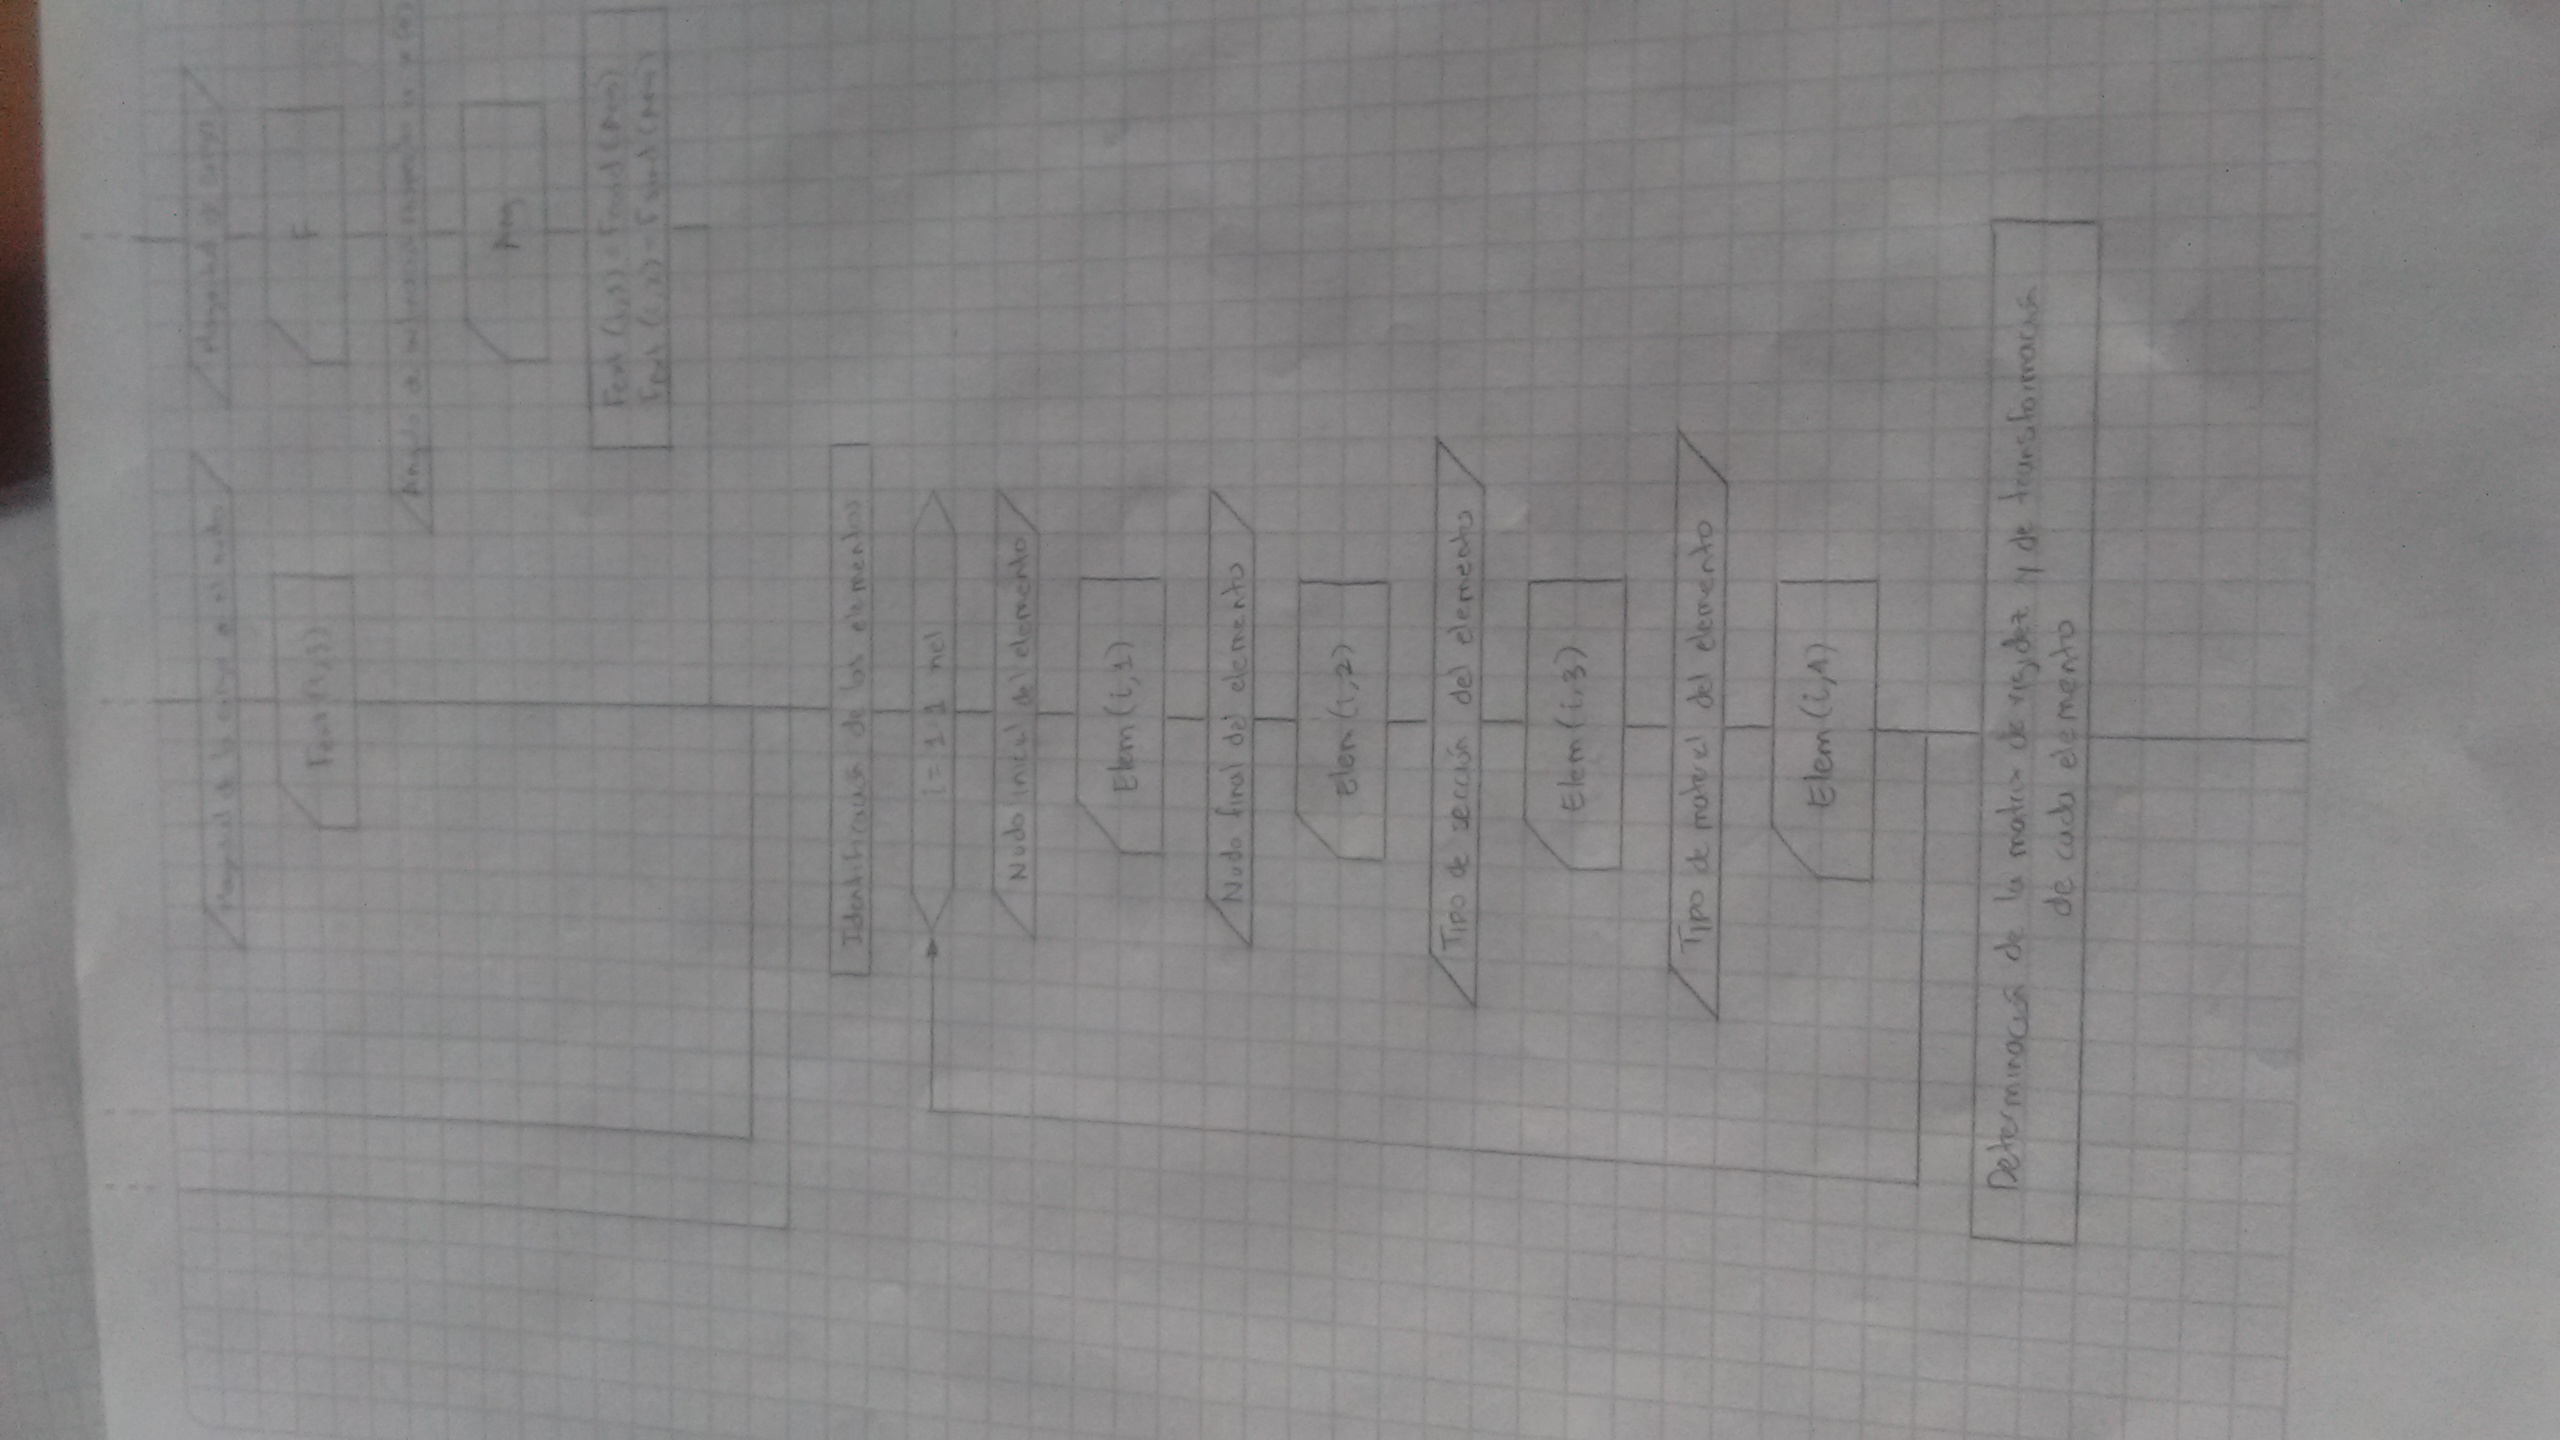 Magnitud de la carga en el nudo
Fext(i,3)
Magnitud de carga
F
Angulo de
Ang
Identificación de los elementos
i = 1:1 nel
Nudo inicial del elemento
Elem(i,1)
Nudo final del elemento
Elem(i,2)
Tipo de sección del elemento
Elem(i,3)
Tipo de material del elemento
Elem(i,4)
Determinación de la matriz de rigidez y de transformación
de cada elemento